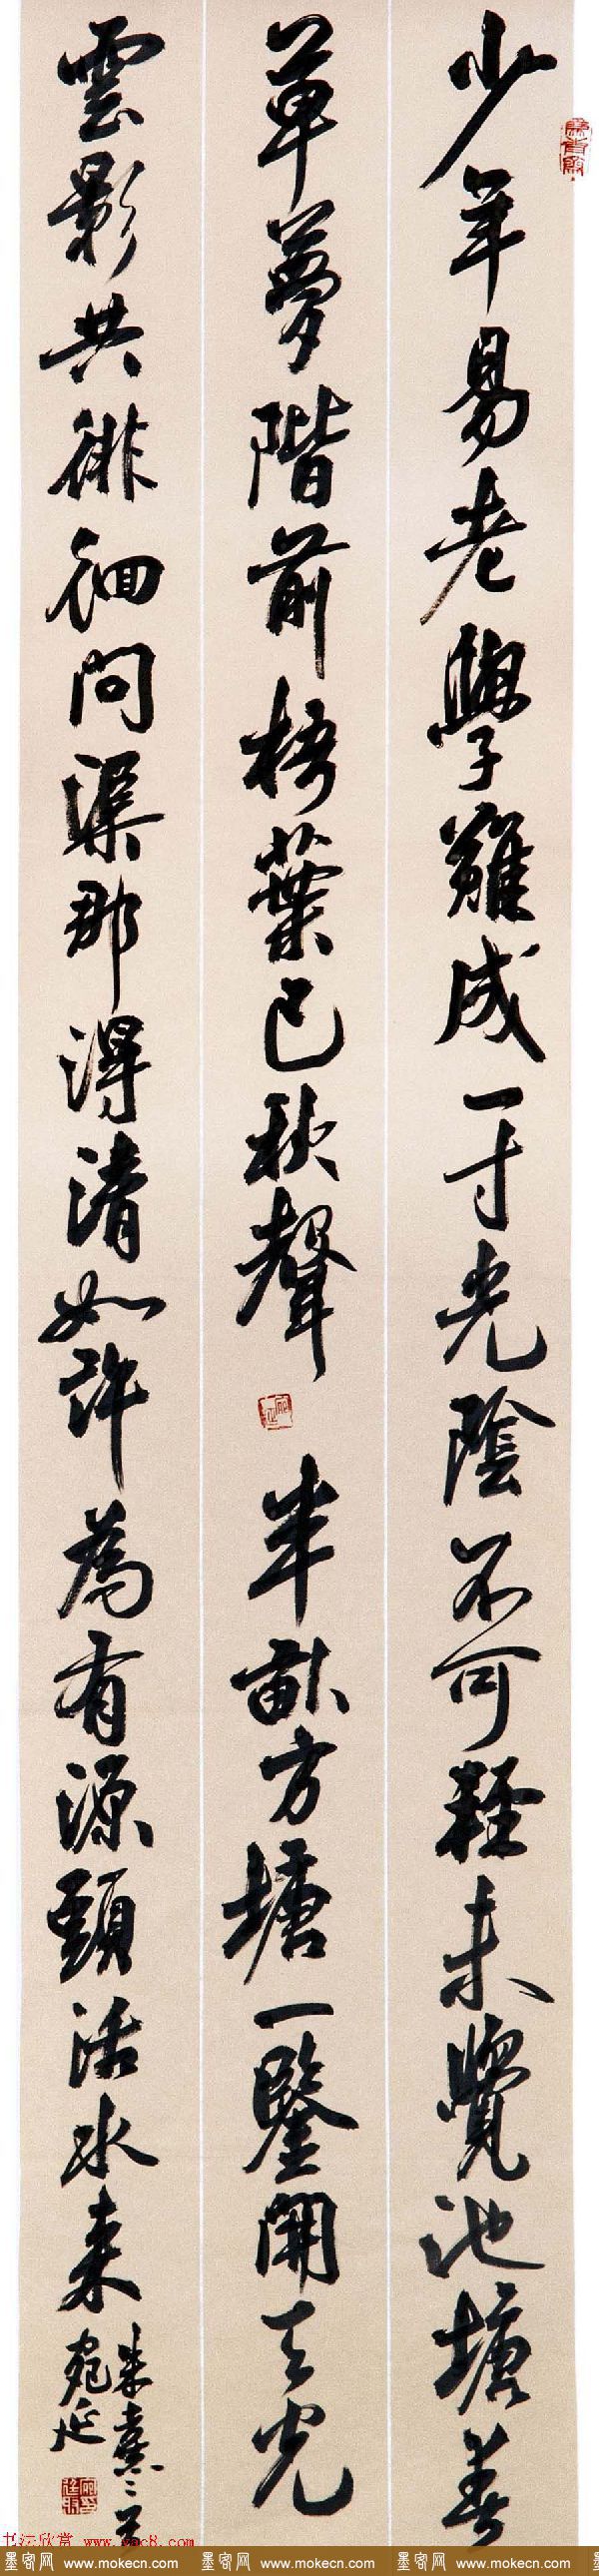 少年易老學難成一寸光陰不可輕未覺池塘春
草夢階前梧葉已秋聲
半畝方塘一鑒開天光
雲影共徘徊問渠那得清如許為有源頭活水來
朱熹二首
宛延
书法欣赏 www.yac8.com
墨客网 www.mokecn.com 墨客网 www.mokecn.com 墨客网 www.mokecn.com